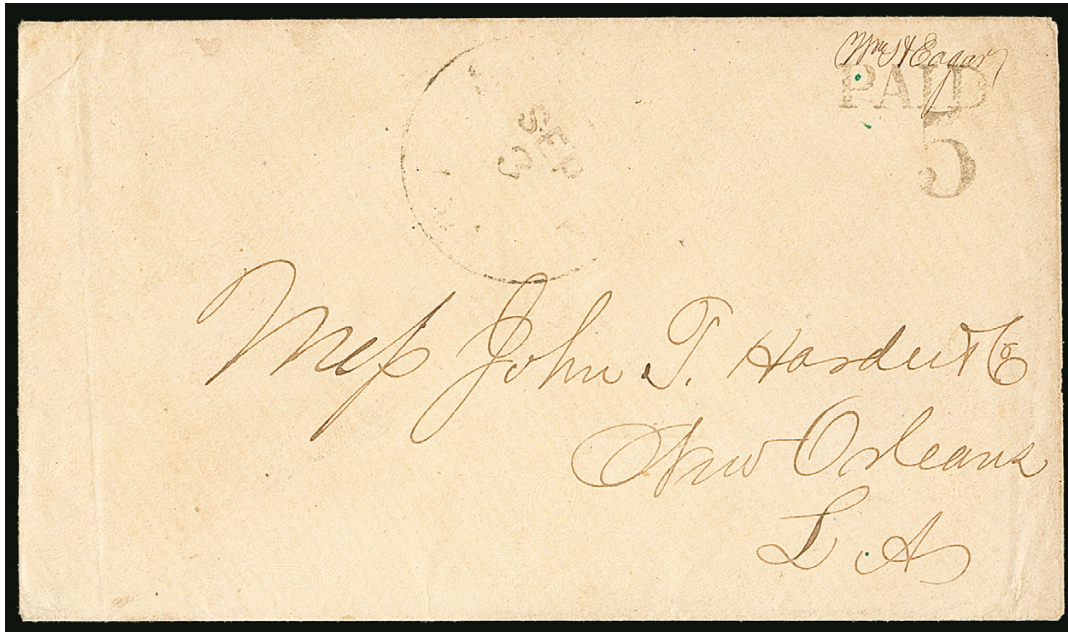 Wm H Eagar
PAID
5
SEP
3
Mess John T. Hardie & Co
New Orleans
L A